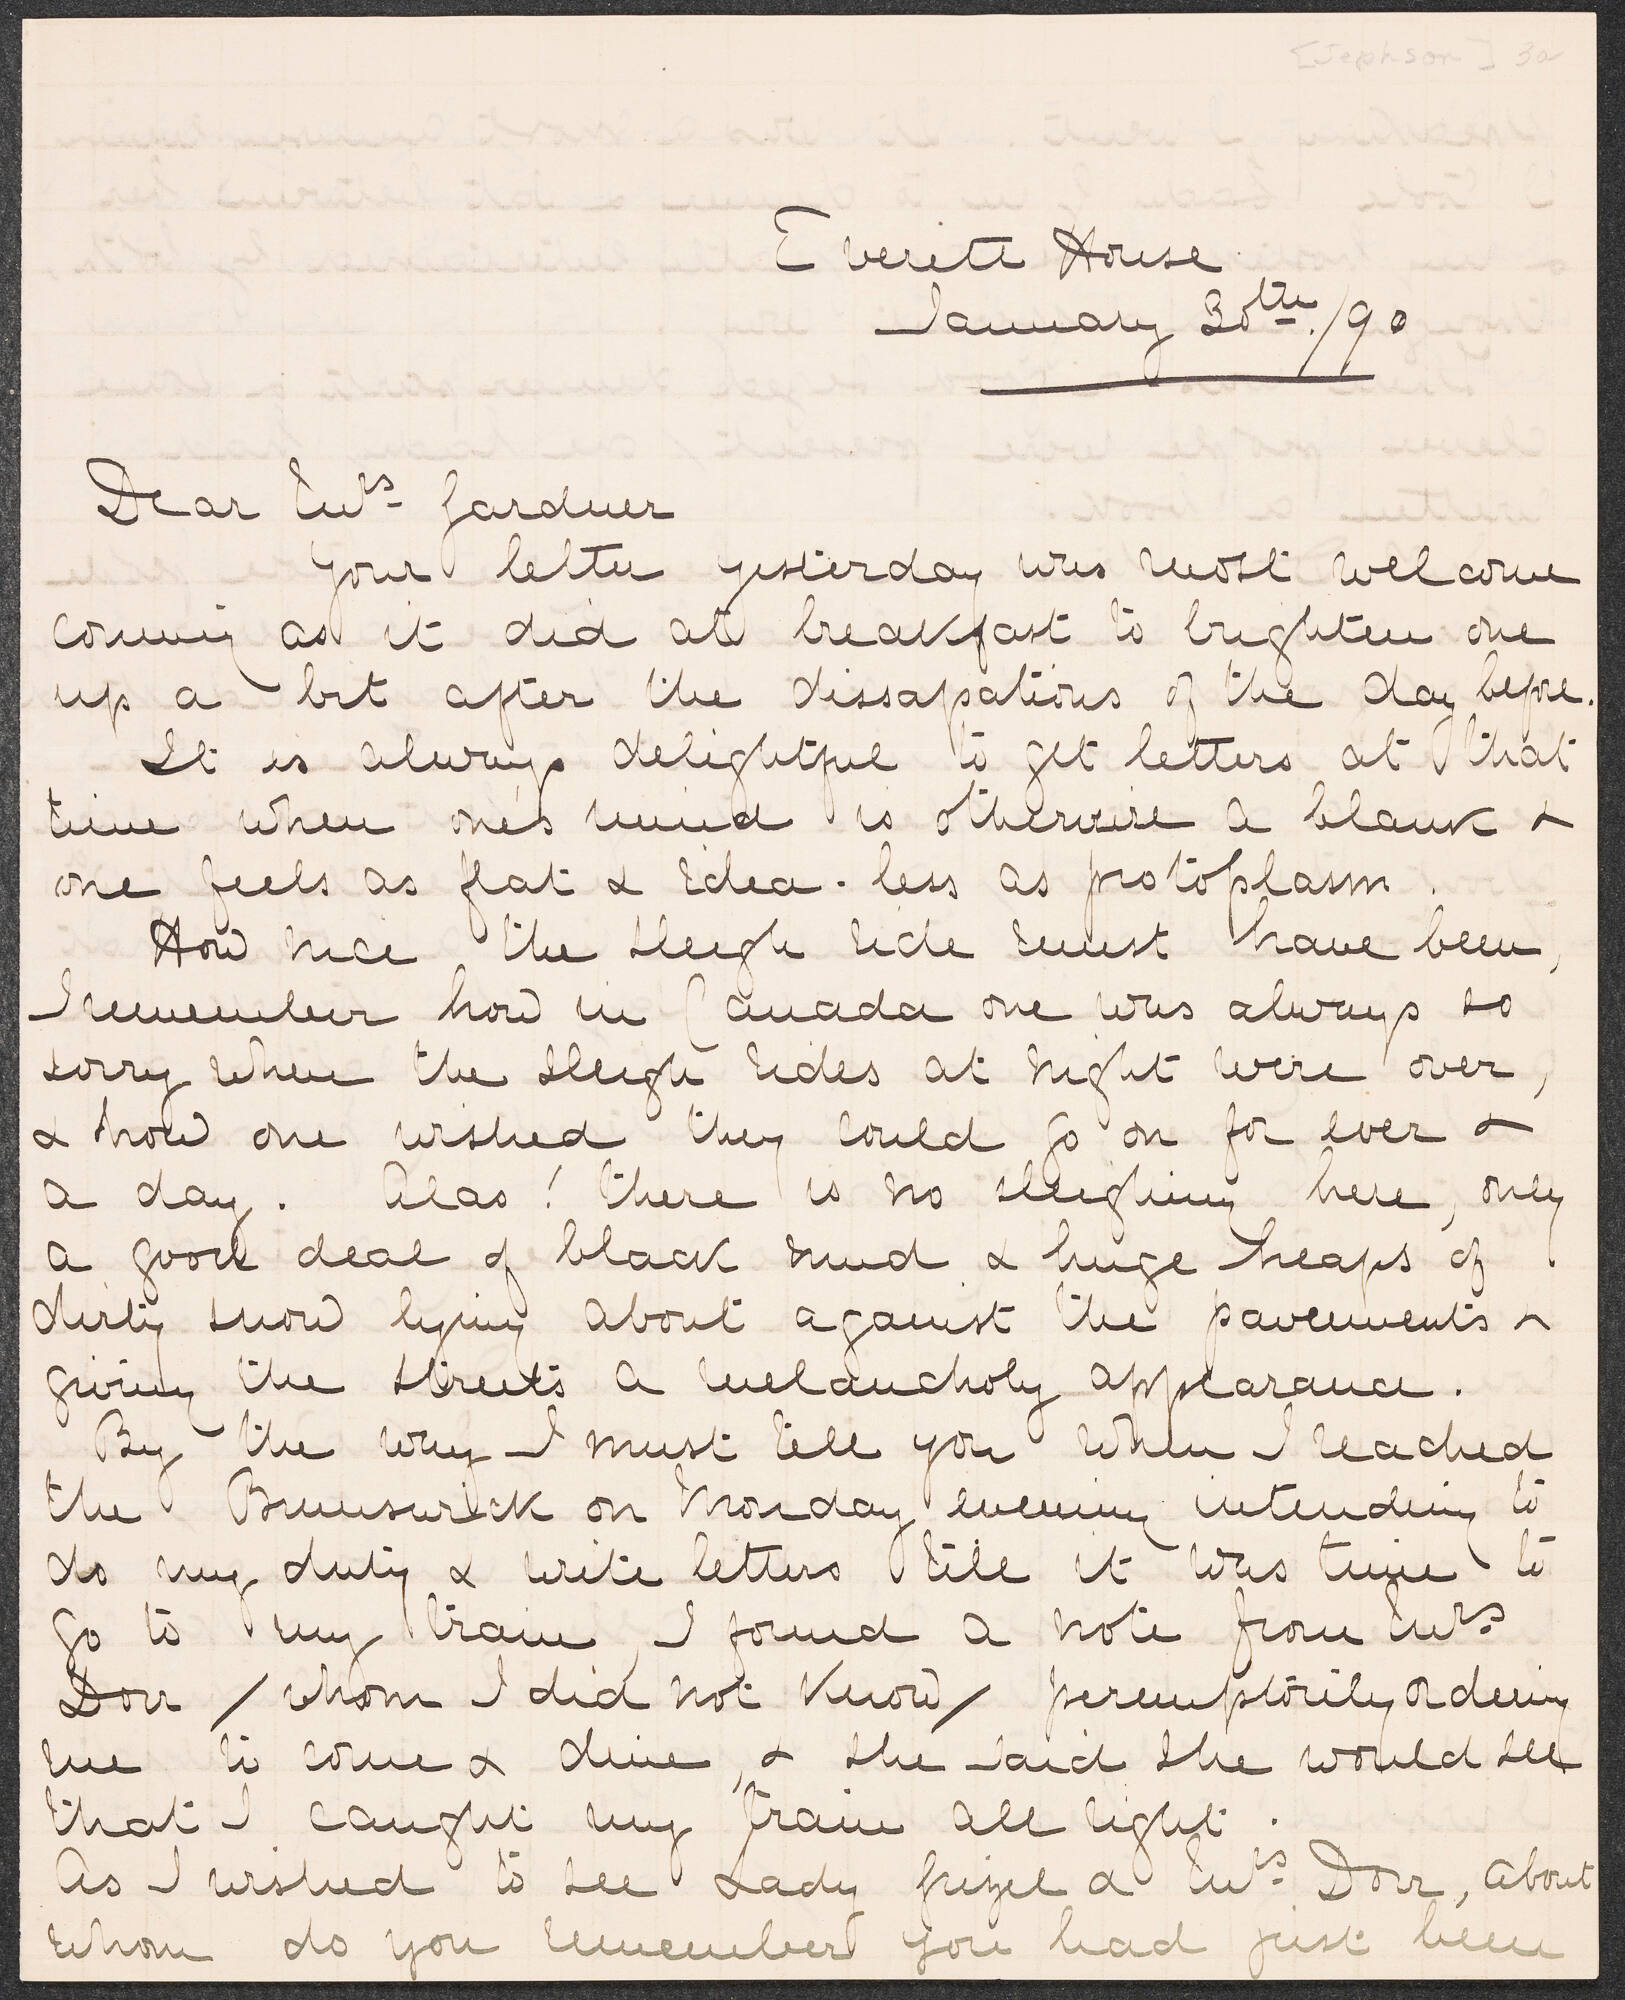 [Jephson] 3a
Everett House
January 30th./90
Dear Mrs Gardner
Your letter yesterday was most welcome
coming as it did at breakfast to brighten one
up a bit after the dissapations of the day before.
It is always delightful to get letters at that
time when one's mind is otherwise a blank &
one feels as flat & idea-less as protoplasm.
How nice the sleigh ride must have been,
I remember how in Canada one was always so
sorry when the sleigh rides at night were over,
& how one wished they could go on for ever &
a day. Alas! there is no sleighing here, only
a good deal of black mud & huge heaps of
dirty snow lying about against the pavements &
giving the streets a melancholy appearance.
By the way I must tell you when I reached
the Brunswick on Monday evening intending to
do my duty & write letters till it was time to
go to my train, I found a note from Mrs
Dorr / whom I did not know / peremptorily ordering
me to come & dine, & she said she would see
that I caught my train all right.
As I wished to see Lady & Mrs Dorr, about
whom do you remember you had just been